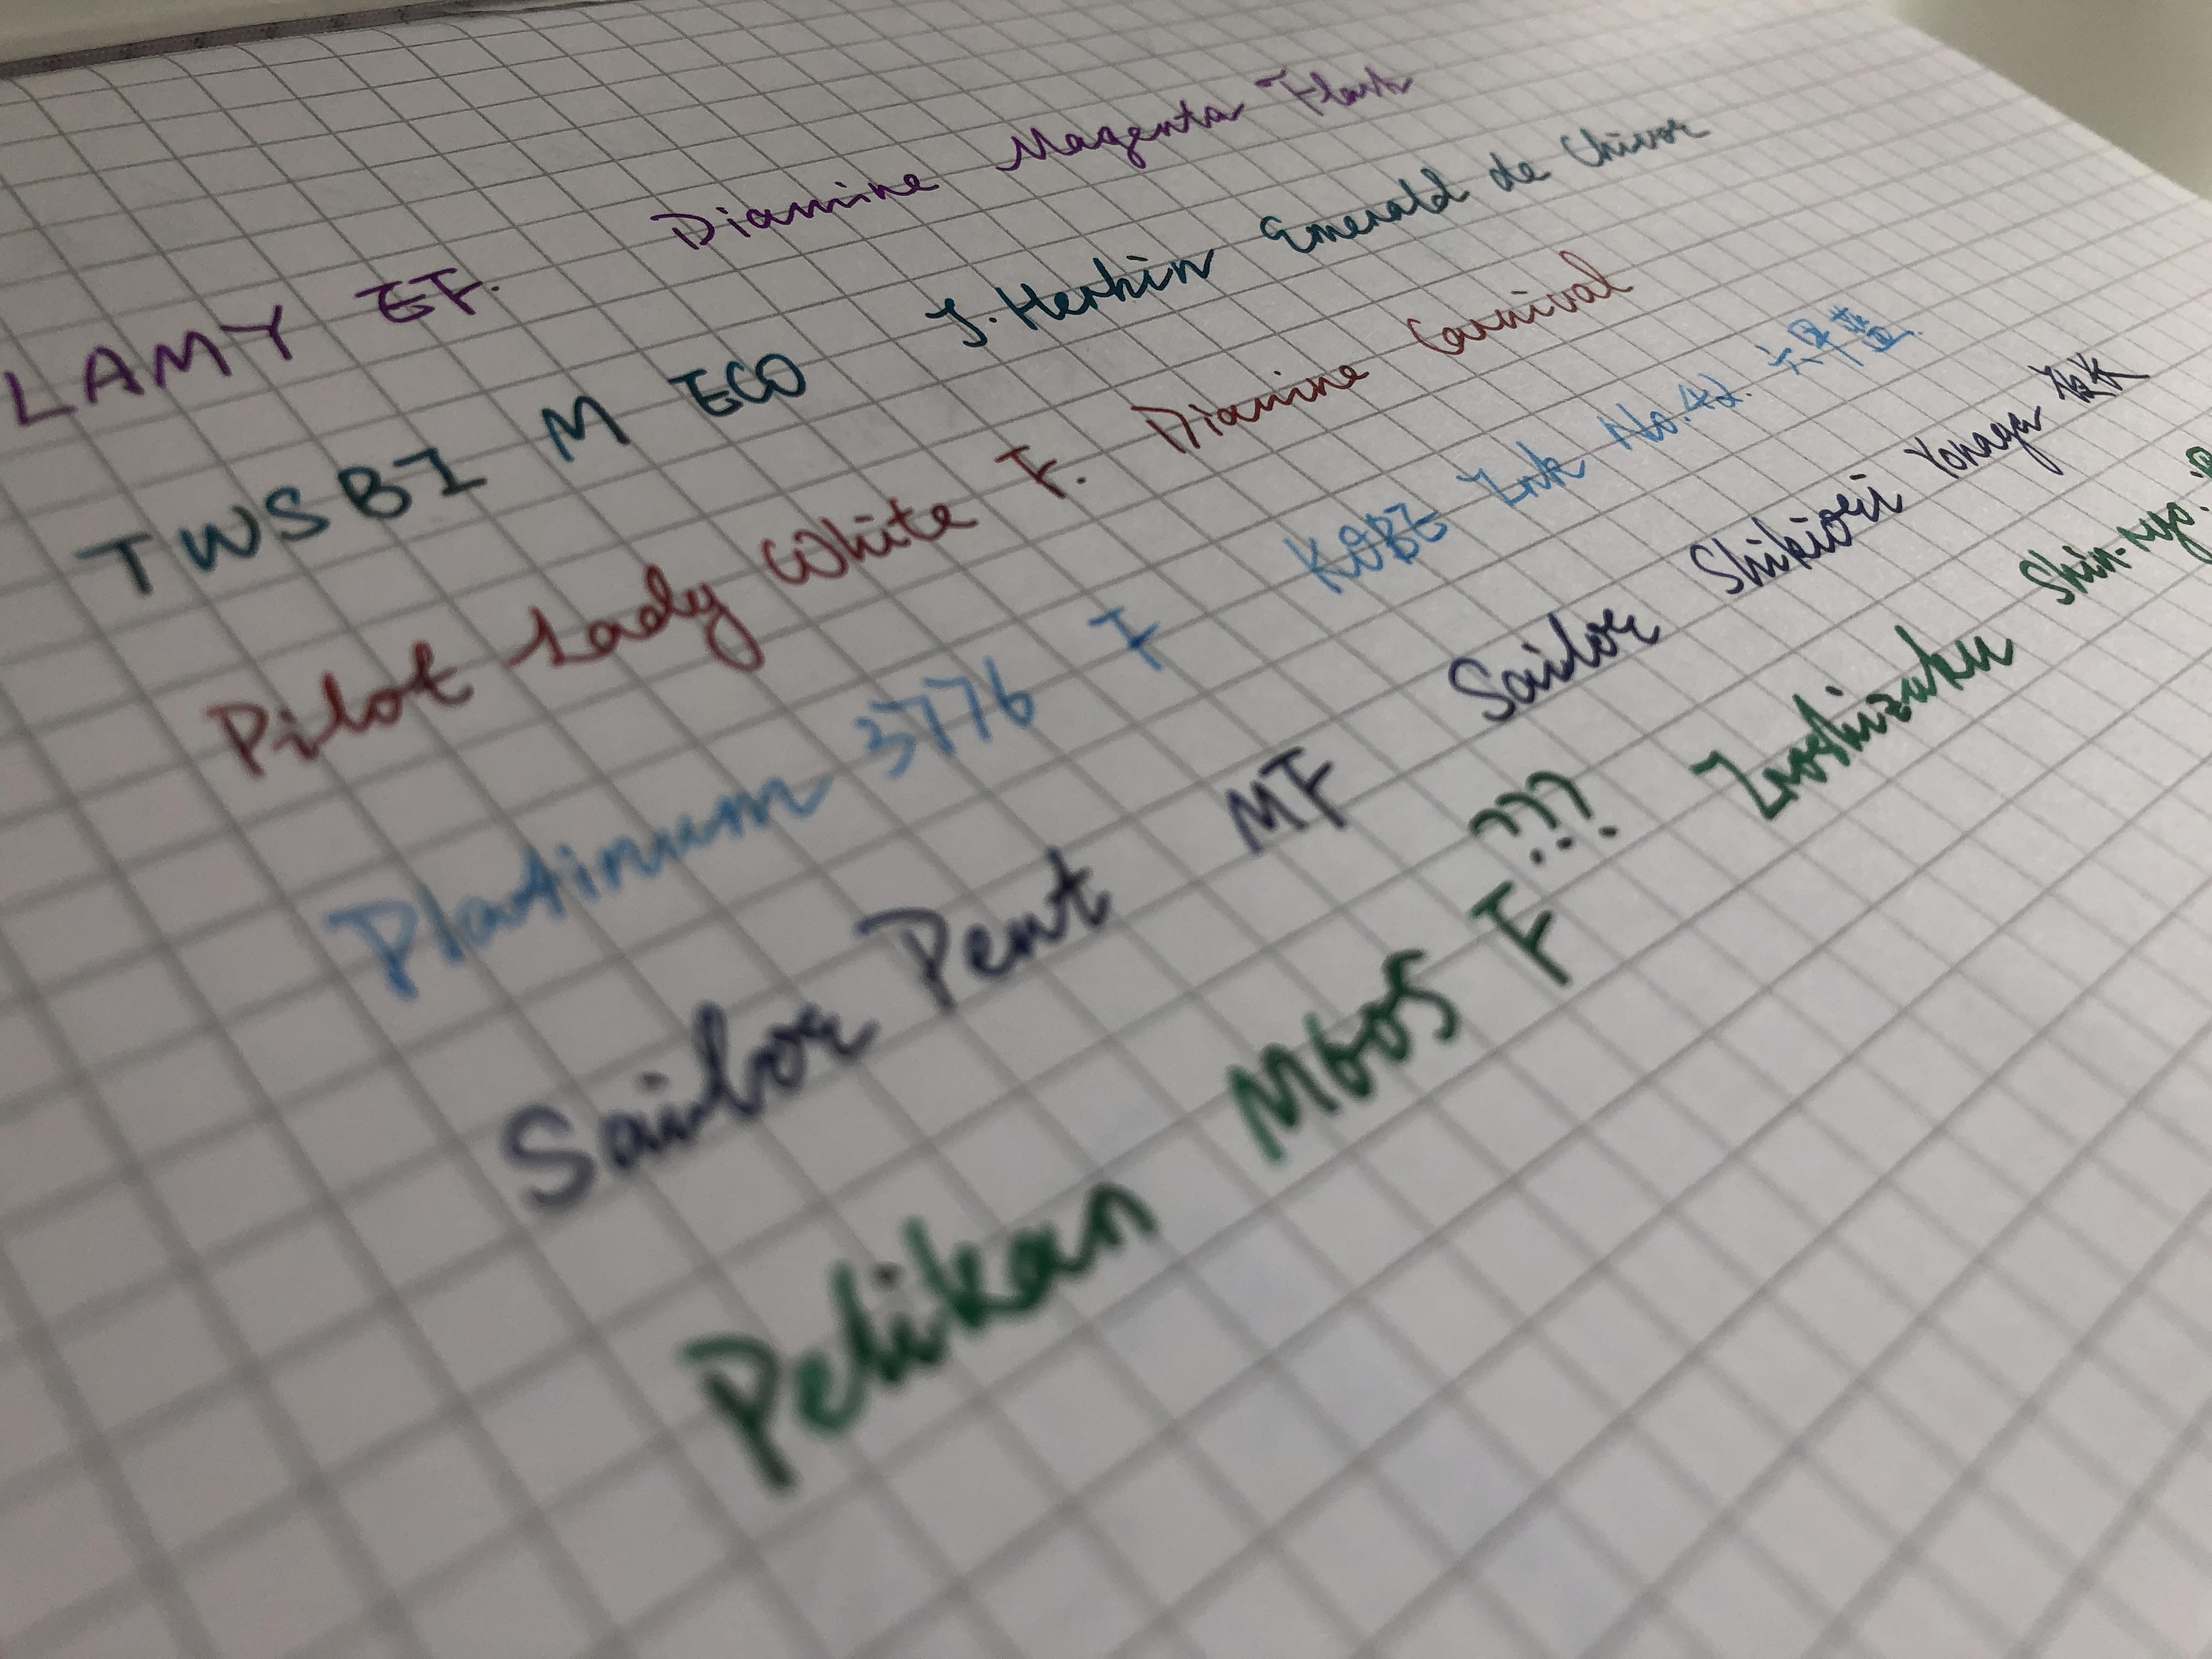 LAMY EF. Diamine Magenta Flash
TWSBI M ECO J.Herbin Emerald de Chivor
Pilot Lady White F. Diamine Carnival
Platinum 3776 F KOBE Ink No.42. 六甲藍
Sailor Pent MF Sailor Shikiori Yonaga 夜長
Pelikan M605 F ??? Iroshizuku Shin-ryo.